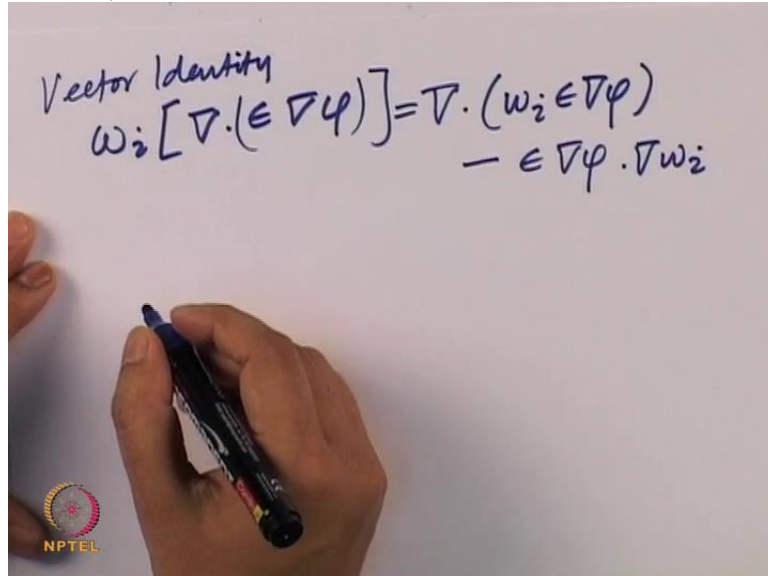 Vector Identity
ω_i [∇·(∈ ∇φ)] = ∇·(ω_i ∈ ∇φ)
− ∈ ∇φ · ∇ω_i
NPTEL